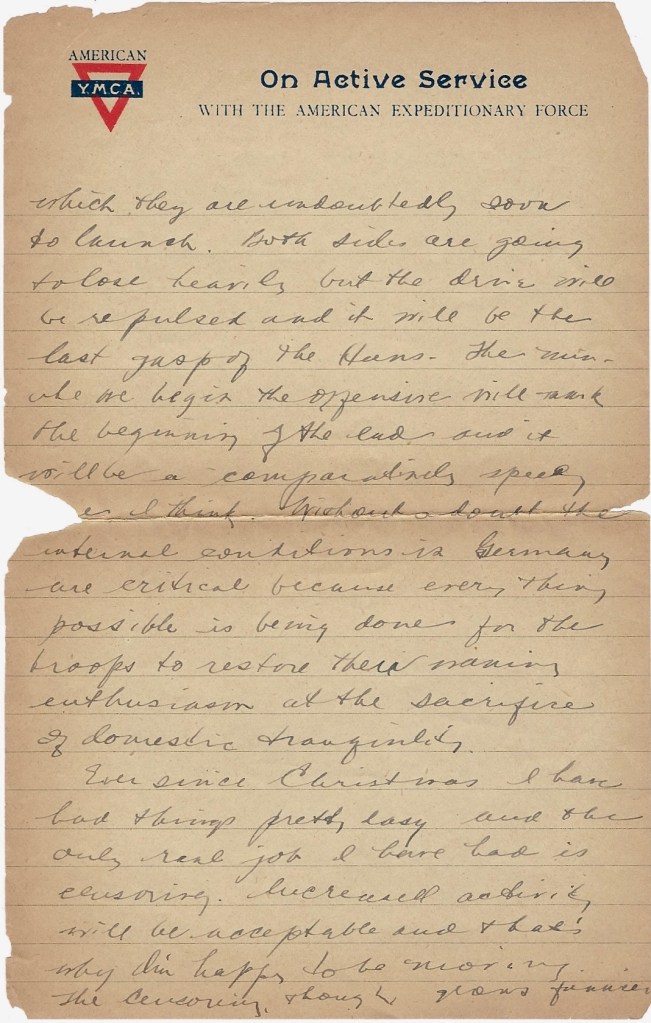 AMERICAN
Y.M.C.A.
On Active Service
WITH THE AMERICAN EXPEDITIONARY FORCE
which they are undoubtedly soon
to launch. Both sides are going
to lose heavily but the drive will
be repulsed and it will be the
last gasp of the Huns. The min-
ute we begin the offensive will mark
the beginning of the end and it
will be a comparatively speedy
I think. Without a doubt the
internal conditions in Germany
are critical because every thing
possible is being done for the
troops to restore their waning
enthusiasm at the sacrifice
of domestic tranquility.
Ever since Christmas I have
had things pretty easy and the
only real job I have had is
censoring. Increased activity
will be acceptable and that's
why I'm happy to be moving.
The censoring, though, grows funnier